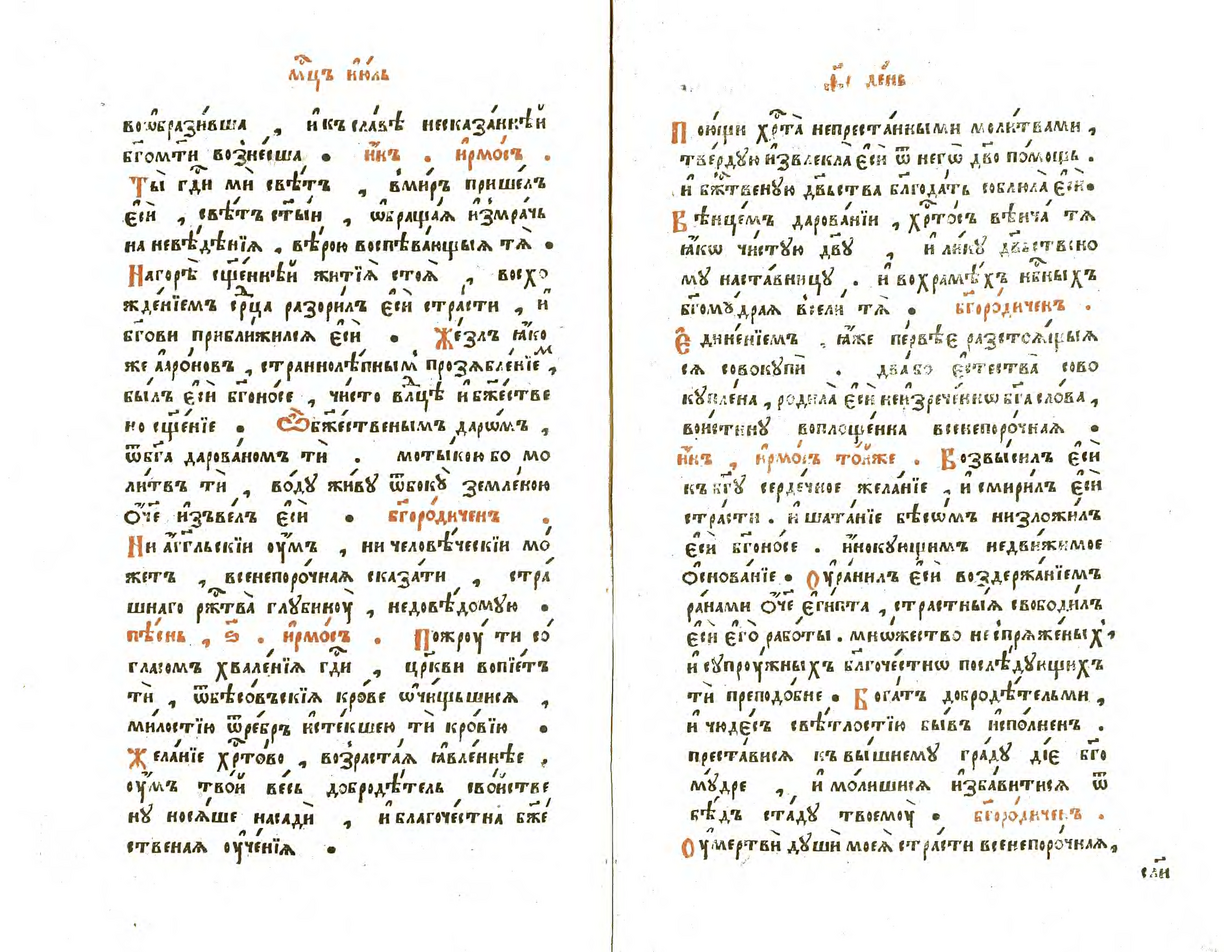 мⷭ҇цъ ию́ль
воѡбрази́вша , и҆ къ сла́вѣ несказа́ннѣй
бг҃омт҃и вознеⷭ҇ша . и҆́нъ . і҆рмо́съ .
Ты̀ гдⷭ҇и мѝ свѣ́тъ , в̾ми́ръ прише́лъ
є҆сѝ , свѣ́тъ ст҃ы́и , ѡ҆браща́ѧ и҆з̾мра́чь
на невѣ́дѣнїѧ , вѣ́рою воспѣва́ющыѧ тѧ̀ .
Нагорѣ̀ сщ҃е́ннѣй житїѧ̀ стоѧ̀ , восхо
жде́нїемъ срⷣца разори́лъ є҆сѝ стра́сти , и҆
бг҃ови прибли́жилсѧ є҆сѝ . Же́злъ ꙗ҆́ко
же а҆аро́новъ , страннолѣ́пнымъ прозѧбе́нїемъ ,
бы́лъ є҆сѝ бг҃оно́се , чи́сто влⷣцѣ и҆ бж҃е́стве
но сщ҃е́нїе . Ѿ бж҃е́ственымъ да́рѡмъ ,
ѿ бг҃а дарова́номъ тѝ . моты́кою бо мо
ли́твъ тѝ , во́ду жи́ву ѿбо́ку земле́ною
о҆́ч҃е и҆зъве́лъ є҆сѝ . бг҃оро́диченъ .
Ни а҆́гг҃льскїи оу҆́мъ , ни человѣ́ческїи мо́
жетъ , всенепоро́чнаѧ сказа́ти , стра́
шнаго ржⷭ҇тва̀ глꙋбинꙋ̀ , недовѣ́домую .
пѣ́снь , ѕ҃ . і҆рмо́съ . Пожроу́ ти со́
гласомъ хвале́нїѧ гдⷭ҇и , цр҃кви вопїе́тъ
тѝ , ѿбѣсо́въскїѧ кро́ве ѡ҆чи́щьшисѧ ,
ми́лостїю ѿребръ̀ и҆сте́кшею тѝ кро́вїю .
Жела́нїе хрⷭ҇то́во , возраста́ѧ ꙗ҆вле́ннѣе ,
оу҆́мъ тво́й ве́сь добродѣ́тель сво́йстве
ну носѧ́ше насадѝ , и҆ благоче́стна бж҃е́
ственаѧ оу҆че́нїѧ .
а҃і де́нь
Пою́щи хрⷭ҇та̀ непреста́нными моли́твами ,
тве́рдую и҆звлекла̀ є҆сѝ ѿ негѡ̀ дв҃о по́мощь .
и҆ бжⷭ҇твеную дв҃ьства бл҃года́ть соблюла̀ є҆сѝ .
Вѣнце́мъ дарова́нїи , хрⷭ҇то́съ вѣнча̀ тѧ
ꙗ҆́кѡ чи́стую дв҃у , и҆ ли́ку дв҃ьствено
му наста́вницу . и҆ вохра́мѣхъ нбⷭ҇ныхъ
бг҃омꙋ́драѧ вселѝ тѧ̀ . бг҃оро́диченъ .
Е҆дине́нїемъ , ꙗ҆́же пе́рвѣе разстоѧ́щыѧ
сѧ совокупѝ . два̀ бо є҆стества̀ сово
ку́плена , родила̀ є҆сѝ неизрече́ннѡ бг҃а сло́ва ,
вои́стину воплоще́нна всенепоро́чнаѧ .
и҆́нъ , і҆рмо́съ то́йже . Возвы́силъ є҆сѝ
къ бг҃у серде́чное жела́нїе , и҆ смири́лъ є҆сѝ
стра́сти . и҆ шата́нїе бѣсѡ́мъ низложи́лъ
є҆сѝ бг҃оно́се . и҆́нокующимъ недви́жимое
ѻ҆снова́нїе . Оу҆ра́нилъ є҆сѝ воздержа́нїемъ
ра́нами ѻ҆́ч҃е є҆гѵ́пта , стра́стныѧ свободи́лъ
є҆сѝ є҆гѻ̀ рабо́ты . мнѡ́жество неспрѧже́ныхъ ,
и҆ супроу́жныхъ бл҃гоче́стнѡ послѣ́дующихъ
тѝ преподо́бне . Бога́тъ добродѣ́тельми ,
и҆ чюде́съ свѣ́тлостїю бы́въ и҆спо́лненъ .
преста́висѧ къ вы́шнему гра́ду дїе бг҃о
мꙋ́дре , и҆ моли́шисѧ и҆зба́витисѧ ѿ
бѣ́дъ ста́ду твоемоу̀ . бг҃оро́диченъ .
Оу҆мертвѝ дꙋшѝ моеѧ̀ стра́сти всенепоро́чнаѧ ,
сл҃и